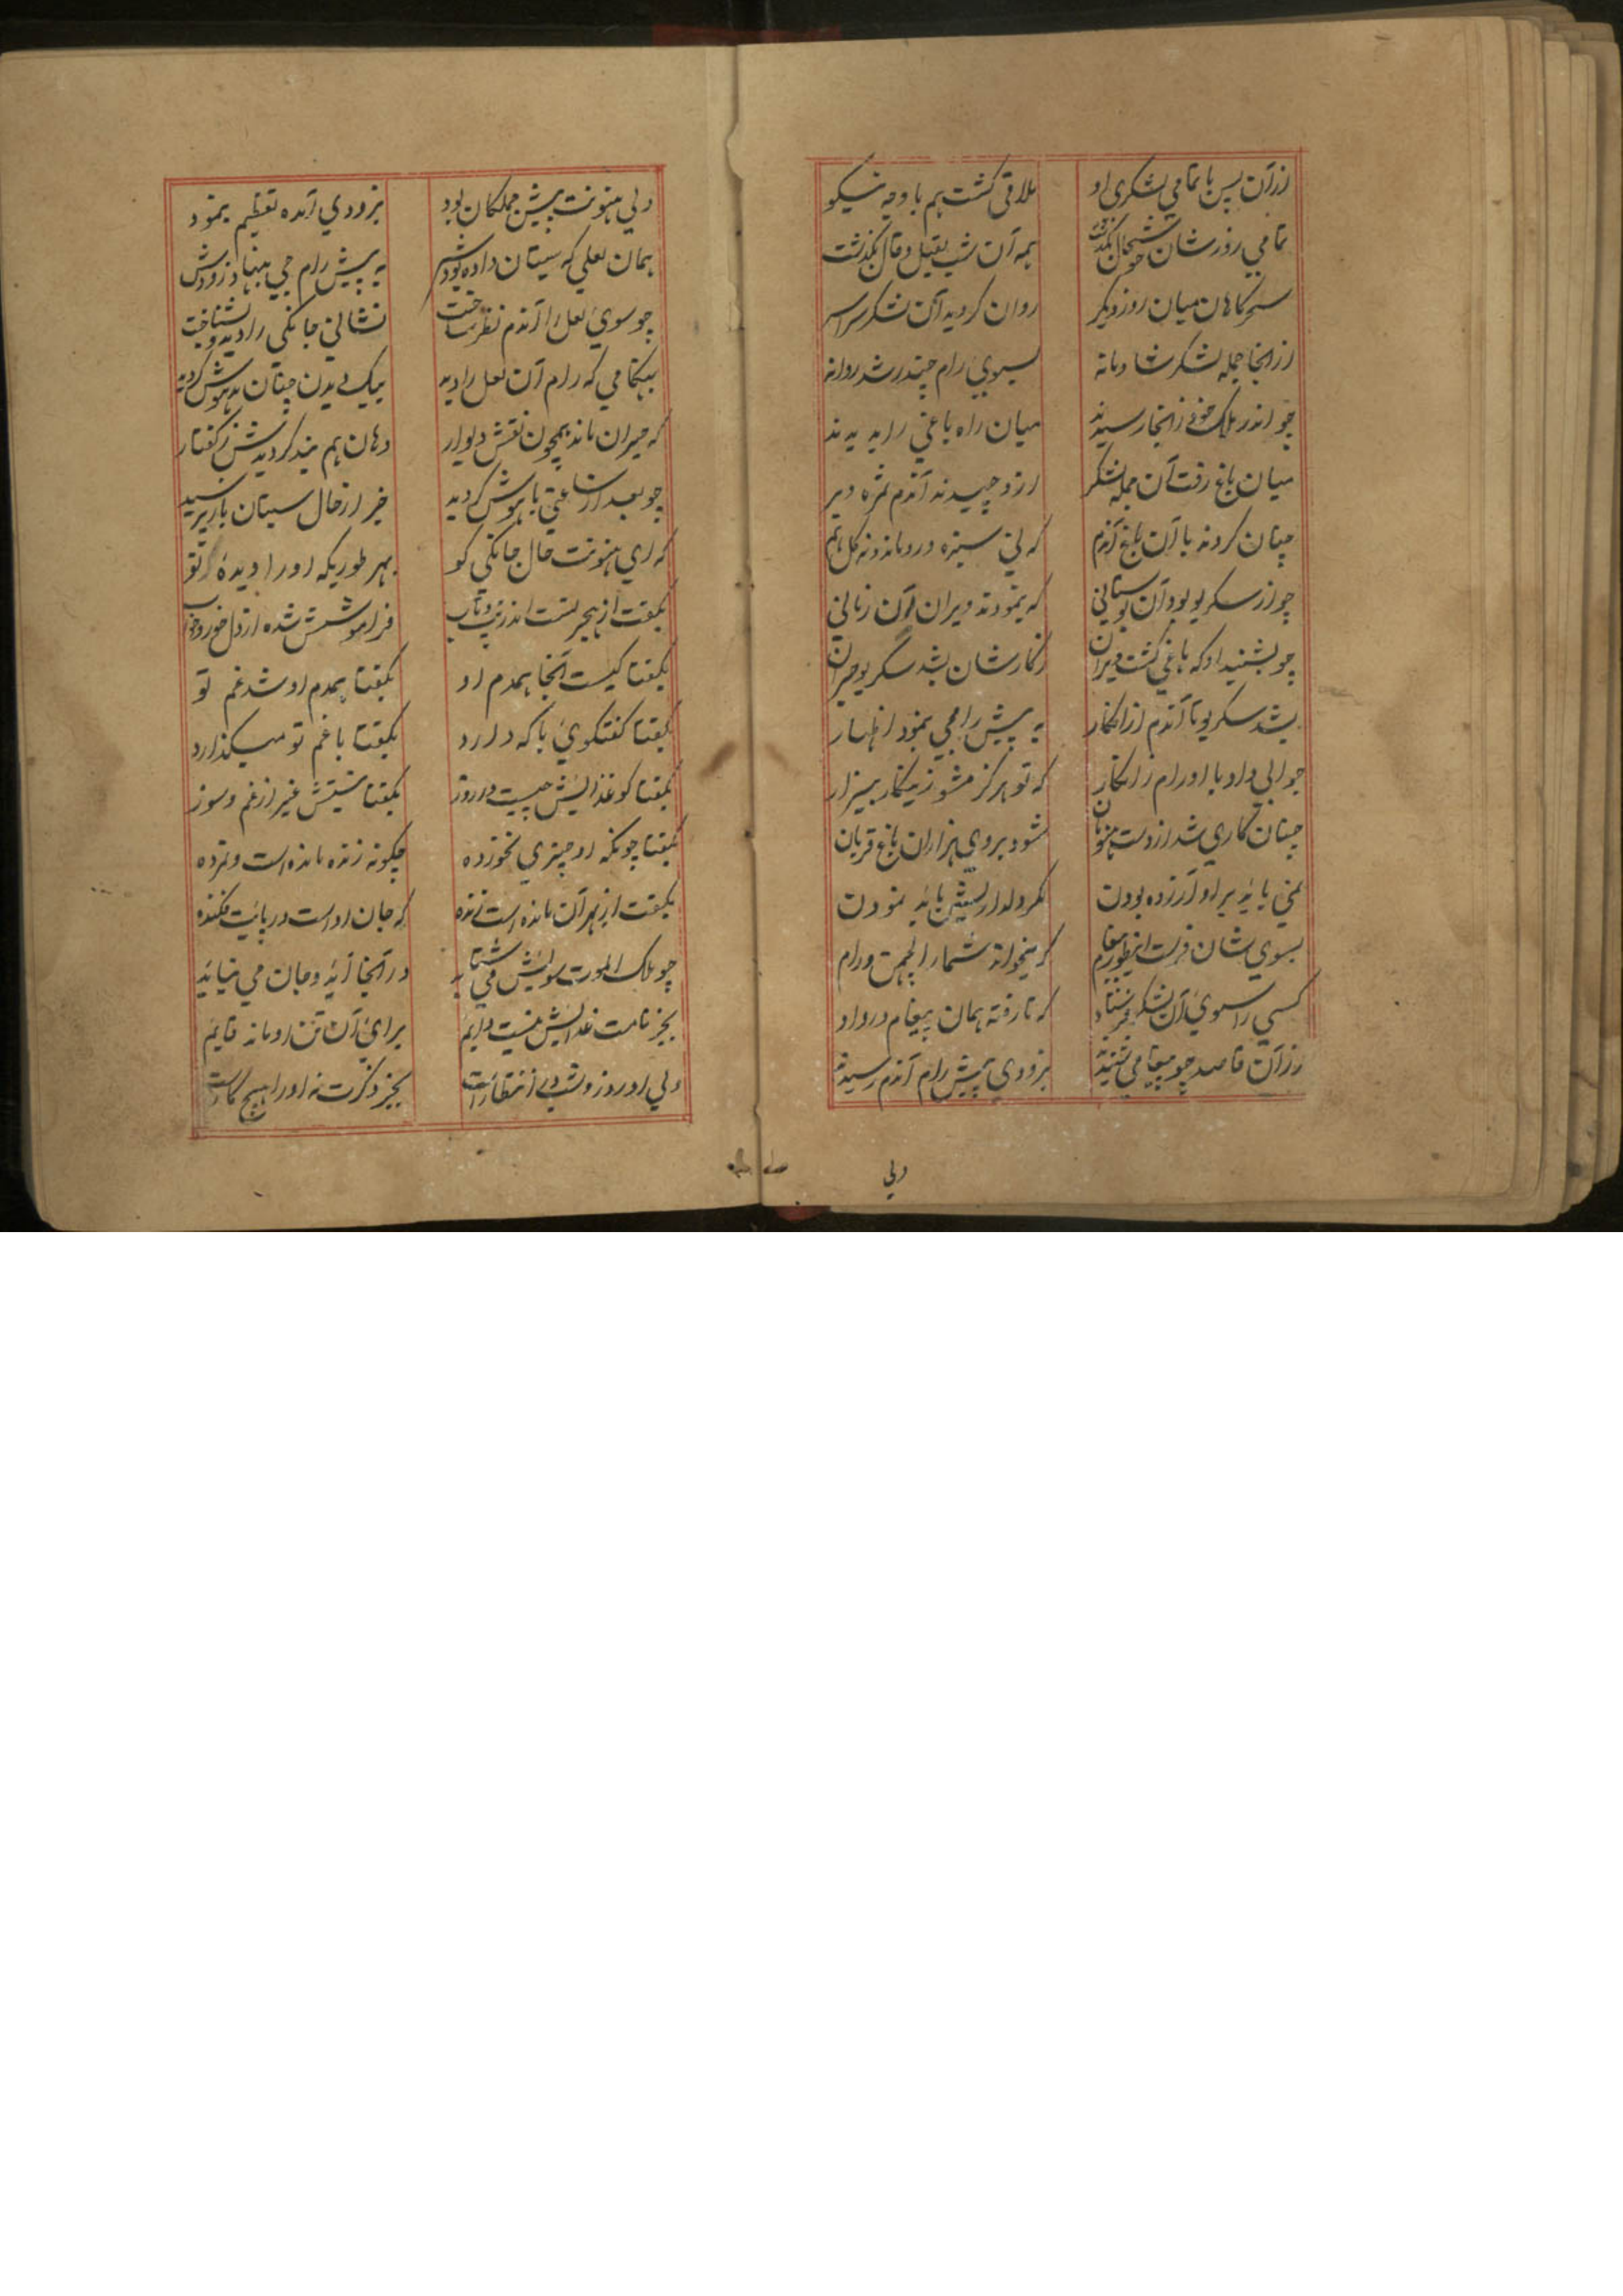 ازان پس با تمامي لشكرى او ملاقى كشت هم با وجه نيكو
تمامي روز شان خوشحال بكذشت همه آن شب بقيل و قال بكذشت
سحركاهان ميان روز ديكر روان كرديد آن لشكر سراسر
از انجا جمله لشكر شادمانه بسوي رام چندر شد روانه
چو اندر ملك خود ز انجا رسيدند ميان راه باغي را بديدند
ميان باغ رفت آن جمله لشكر ازو چيدند آندم ثمره و بر
چنان كردند با آن باغ آندم كه ني سبزه درو ماند و نه كل هم
چو از سكريو بود آن بوستاني كه بنمودند ويران آن زماني
چو بشنيد او كه باغي كشت ويران ز كار شان بشد سكريو حيران
بشد سكريو تا آندم ازانكار به پيش رامجي بنمود اظهار
جوابي داد با او رام زانكار كه تو هركز مشو زينكار بيزار
چنان كاري شد از دست هنونان شود بروي هزاران باغ قربان
نمي بايد براو آزرده بودن مكر دلداريش بايد نمودن
بسوي شان فرست اينطور پيغام كه ميخواند شما را لچهمن و رام
كسي را سوى آن لشكر فرستاد كه تا رفته همان پيغام در داد
ازان قاصد چو پيغامي شنيدند بزودي پيش رام آندم رسيدند
ولي
ولي هنونت پيش جملكان بود بزودي آمده تعظيم بنمود
همان لعلي كه سيتان داده بودش به پيش رام جي بنهاد زودش
چو سوي لعل را آندم نظر ساخت نشاني جانكي را ديد و بشناخت
بهنكامي كه رام آن لعل را ديد بيك ديدن چنان بيهوش كرديد
كه حيران ماند همچون نقش ديوار دهان هم بند كرديدش ز كفتار
چو بعد از ساعتي با هوش كرديد خبر از حال سيتان باز پرسيد
كه اي هنونت حال جانكي كو بهر طوريكه او را ديدهٔ تو
بكفت از هجر تست اندر تب و تاب فراموشش شده از دل خور و خواب
بكفتا كيست آنجا همدم او بكفتا همدم او شد غم تو
بكفتا كفتكوي با كه دارد بكفتا با غم تو ميكذارد
بكفتا كو غذايش چيست در روز بكفتا نيستش غير از غم و سوز
بكفتا چونكه او چيزي نخورده چكونه زنده مانده است و نمرده
بكفت از بهر آن مانده است زنده كه جان او است در پايت فكنده
چو ملك الموت سويش مي شتابد در آنجا آيد و جان مي نيابد
بجز نامت غذايش نيست دايم براي آن تن او ماند قايم
ولي او روز و شب در انتظار است بجز ذكرت نه او را هيچ كار است